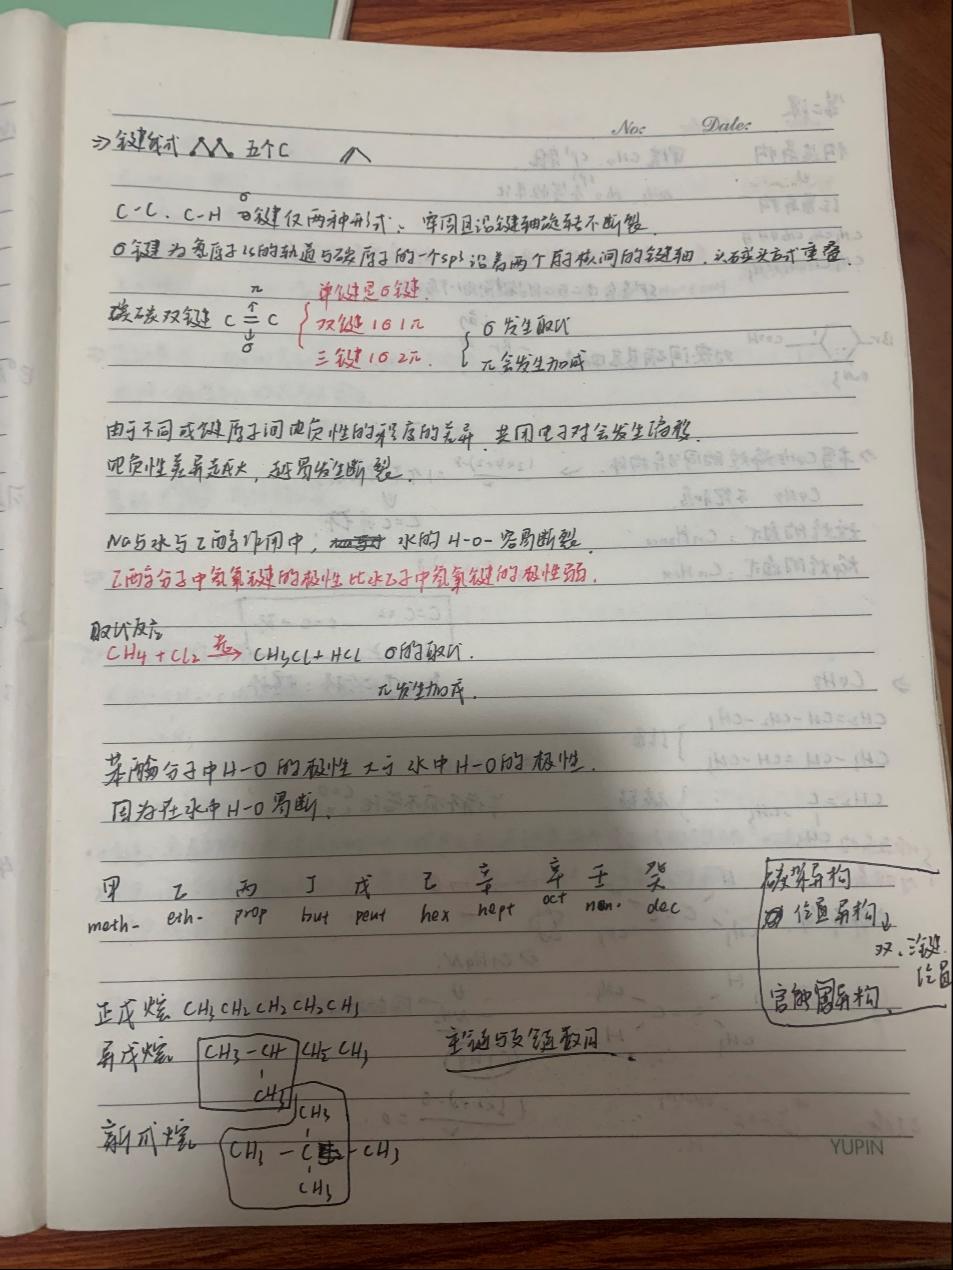 No: Date:
⇒ 键线式 五个C
C-C、C-H σ键仅两种形式：牢固且沿键轴旋转不断裂.
σ键为氢原子1s的轨道与碳原子的一个sp³沿着两个原子核间的键轴，以头碰头方式重叠.
单键是σ键.
碳碳双键 C=C π σ 双键1σ1π σ发生取代
三键1σ2π. π会发生加成
由于不同成键原子间电负性的程度的差异，共用电子对会发生偏移.
电负性差异越大，越易发生断裂.
Na与水与乙醇作用中，水的H-O-容易断裂.
乙醇分子中氢氧键的极性比水分子中氢氧键的极性弱.
取代反应
CH4+Cl2 光→ CH3Cl+HCl σ的取代.
π发生加成.
苯酚分子中H-O的极性大于水中H-O的极性.
因为在水中H-O易断.
甲 乙 丙 丁 戊 己 辛 辛 壬 癸
meth- eth- prop but pent hex hept oct non. dec
碳架异构
位置异构
双、三键
位置
官能团异构
正戊烷 CH3CH2CH2CH2CH3
异戊烷 CH3-CH CH2CH3
CH3
主链与支链数目
CH3
新戊烷 CH3-C-CH3
CH3
YUPIN